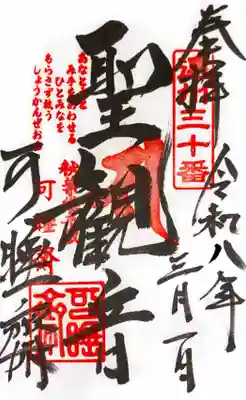 奉拝
三十番
令和八年
三月一日
聖観音
あなとうと
み手をあわせる
ひとみなを
もらさず救う
しょうかんぜおん
可睡斎
可睡斎